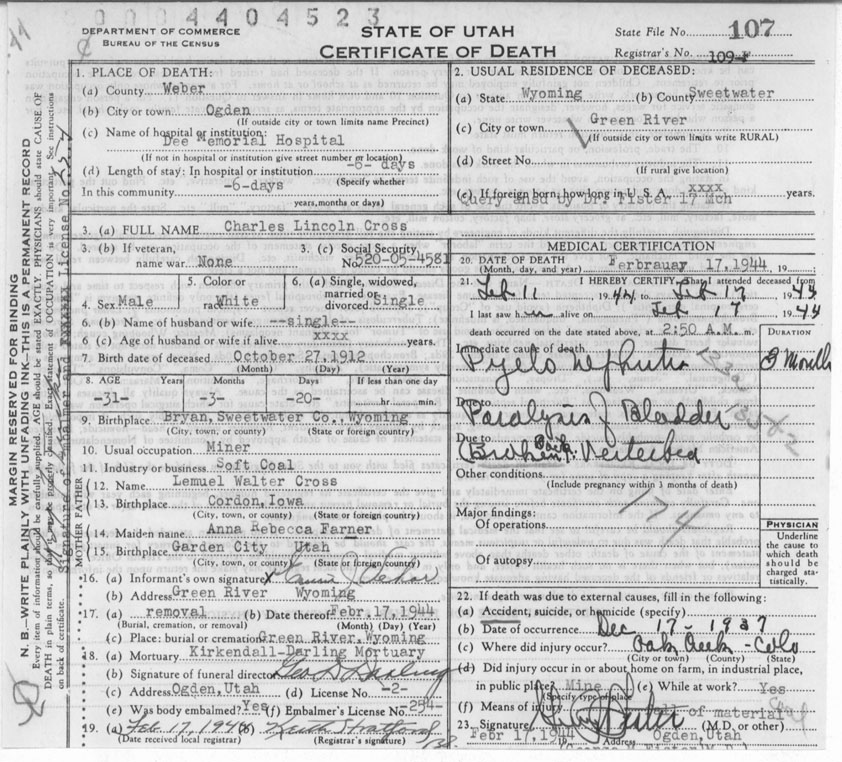 0004404523
DEPARTMENT OF COMMERCE
BUREAU OF THE CENSUS
STATE OF UTAH
CERTIFICATE OF DEATH
State File No. 107
Registrar's No. 109
MARGIN RESERVED FOR BINDING
N. B.—WRITE PLAINLY WITH UNFADING INK—THIS IS A PERMANENT RECORD
Every item of information should be carefully supplied. AGE should be stated EXACTLY. PHYSICIANS should state CAUSE OF
DEATH in plain terms, so that it may be properly classified. Exact statement of OCCUPATION is very important. See instructions
on back of certificate.
1. PLACE OF DEATH:
(a) County Weber
(b) City or town Ogden
(If outside city or town limits name Precinct)
(c) Name of hospital or institution:
Dee Memorial Hospital
(If not in hospital or institution give street number or location)
(d) Length of stay: In hospital or institution -6- days
(Specify whether
In this community -6-days
years, months or days)
2. USUAL RESIDENCE OF DECEASED:
(a) State Wyoming (b) County Sweetwater
(c) City or town Green River
(If outside city or town limits write RURAL)
(d) Street No.
(If rural give location)
(e) If foreign born; how long in U. S. A. xxxx years.
Query ansd by Dr. Fister 17 Mch
3. (a) FULL NAME Charles Lincoln Cross
3. (b) If veteran,
name war None
3. (c) Social Security
No. 520-05-4581
4. Sex Male
5. Color or
race White
6. (a) Single, widowed,
married or
divorced Single
6. (b) Name of husband or wife --single--
6 (c) Age of husband or wife if alive xxxx years.
7. Birth date of deceased October 27, 1912
(Month) (Day) (Year)
8. AGE Years Months Days If less than one day
-31- -3- -20- hr. min.
9. Birthplace Bryan, Sweetwater Co., Wyoming
(City, town, or county) (State or foreign country)
10. Usual occupation Miner
11. Industry or business Soft Coal
FATHER
12. Name Lemuel Walter Cross
13. Birthplace Cordon, Iowa
(City, town, or county) (State or foreign country)
MOTHER
14. Maiden name Anna Rebecca Farner
15. Birthplace Garden City Utah
(City, town or county) (State or foreign country)
16. (a) Informant's own signature
(b) Address Green River Wyoming
17. (a) removal (b) Date thereof Febr, 17, 1944
(Burial, cremation, or removal) (Month) (Day) (Year)
(c) Place: burial or cremation Green River, Wyoming
18. (a) Mortuary Kirkendall-Darling Mortuary
(b) Signature of funeral director Geo. D. Darling
(c) Address Ogden, Utah (d) License No. -2-
(e) Was body embalmed? Yes (f) Embalmer's License No. 254-
19. (a) Feb 17, 1944 (b) Keith Stratford
(Date received local registrar) (Registrar's signature)
MEDICAL CERTIFICATION
20. DATE OF DEATH
(Month, day, and year) Ferbrauay 17, 1944, 19
21. I HEREBY CERTIFY, That I attended deceased from
Feb 11 1944 to Feb 17 1944
I last saw him alive on Feb 17 1944
death occurred on the date stated above, at 2:50 A.M. m.
DURATION
Immediate cause of death
Pyelo nephritis 3 Months
Due to
Paralysis of Bladder
Due to
Broken Back Vertebra
Other conditions
(Include pregnancy within 3 months of death)
174
Major findings:
Of operations
Of autopsy
PHYSICIAN
Underline
the cause to
which death
should be
charged sta-
tistically.
22. If death was due to external causes, fill in the following:
(a) Accident, suicide, or homicide (specify)
(b) Date of occurrence Dec 17 - 1937
(c) Where did injury occur? Oak Creek - Colo
(City or town) (County) (State)
(d) Did injury occur in or about home on farm, in industrial place,
in public place? Mine (e) While at work? Yes
(Specify type of place)
(f) Means of injury of material
23. Signature (M.D. or other)
Febr 17, 1944 Address Ogden, Utah